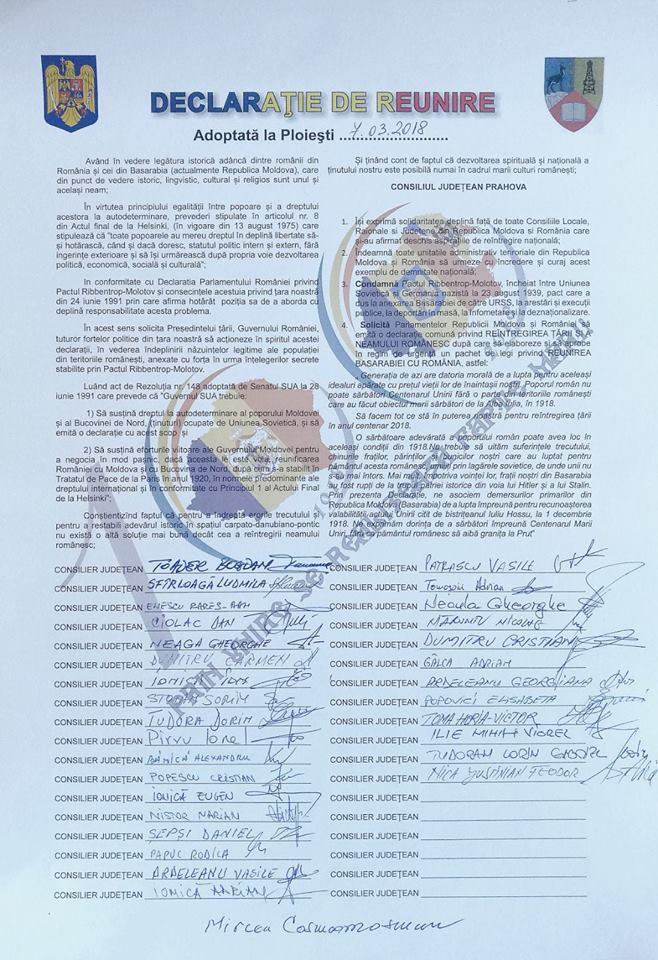 DECLARAŢIE DE REUNIRE
Adoptată la Ploieşti 7.03.2018
Având în vedere legătura istorică adâncă dintre românii din
România şi cei din Basarabia (actualmente Republica Moldova), care
din punct de vedere istoric, lingvistic, cultural şi religios sunt unul şi
acelaşi neam;
În virtutea principiului egalităţii între popoare şi a dreptului
acestora la autodeterminare, prevederi stipulate în articolul nr. 8
din Actul final de la Helsinki, (în vigoare din 13 august 1975) care
stipulează că "toate popoarele au mereu dreptul în deplină libertate să-
şi hotărască, când şi dacă doresc, statutul politic intern şi extern, fără
ingerinţe exterioare şi să îşi urmărească după propria voie dezvoltarea
politică, economică, socială şi culturală";
În conformitate cu Declaraţia Parlamentului României privind
Pactul Ribbentrop-Molotov şi consecinţele acestuia privind ţara noastră
din 24 iunie 1991 prin care afirma hotărât poziţia sa de a aborda cu
deplină responsabilitate acesta problema.
În acest sens solicita Preşedintelui ţării, Guvernului României,
tuturor forţelor politice din ţara noastră să acţioneze în spiritul acestei
declaraţii, în vederea îndeplinirii năzuinţelor legitime ale populaţiei
din teritoriile româneşti, anexate cu forţa în urma înţelegerilor secrete
stabilite prin Pactul Ribbentrop-Molotov.
Luând act de Rezoluţia nr. 148 adoptată de Senatul SUA la 28
iunie 1991 care prevede că "Guvernul SUA trebuie:
1) Să susţină dreptul la autodeterminare al poporului Moldovei
şi al Bucovinei de Nord, ocupate de Uniunea Sovietică, şi să
emită o declaraţie cu acest scop şi
2) Să susţină eforturile viitoare ale Guvernului Moldovei pentru
a negocia, în mod paşnic, dacă aceasta le este voia, reunificarea
României cu Moldova şi Bucovina de Nord, după cum s-a stabilit în
Tratatul de Pace de la Paris din 1920, în normele predominante ale
dreptului internaţional şi în conformitate cu Principiul 1 al Actului Final
de la Helsinki";
Conştientizând faptul că pentru a îndrepta erorile trecutului şi
pentru a restabili adevărul istoric în spaţiul carpato-danubiano-pontic
nu există o altă soluţie mai bună decât cea a reîntregirii neamului
românesc;
Şi ţinând cont de faptul că dezvoltarea spirituală şi naţională a
ţinutului nostru este posibilă numai în cadrul marii culturi româneşti;
CONSILIUL JUDEŢEAN PRAHOVA
1. Îşi exprimă solidaritatea deplină faţă de toate Consiliile Locale,
Raionale şi Judeţene din Republica Moldova şi România care
şi-au afirmat deschis aspiraţiile de reîntregire naţională;
2. Îndeamnă comunităţile administrativ-teritoriale din Republica
Moldova şi România să urmeze cu încredere şi curaj acest
exemplu de demnitate naţională;
3. Condamnă Pactul Ribbentrop-Molotov, încheiat între Uniunea
Sovietică şi Germania nazistă la 23 august 1939, pact care a
dus la anexarea Basarabiei de către URSS, la arestări şi execuţii
publice, la deportări în masă, la înfometare şi deznaţionalizare.
4. Solicită Parlamentelor Republicii Moldova şi României să
emită o declaraţie comună privind REÎNTREGIREA ŢĂRII ŞI A
NEAMULUI ROMÂNESC după care să elaboreze şi să adopte
în regim de urgenţă un pachet de legi privind REUNIREA
BASARABIEI CU ROMÂNIA, astfel:
- Generaţia de azi are datoria morală de a lupta pentru aceleaşi
idealuri apărate cu preţul vieţii lor de înaintaşii noştri. Poporul român nu
poate sărbători Centenarul Unirii fără o parte din teritoriile româneşti
care au făcut obiectul marii sărbători de la Alba Iulia, în 1918.
Să facem tot ce stă în puterea noastră pentru reîntregirea ţării
în anul centenar 2018.
O sărbătoare adevărată a poporului român poate avea loc în
aceleaşi condiţii din 1918. Nu trebuie să uităm suferinţele trecutului,
chinurile fraţilor, părinţilor, bunicilor noştri care au luptat pentru
pământul acesta românesc, murind prin lagărele sovietice, de unde unii nu
s-au mai întors. Mai mult, împotriva voinţei lor, fraţii noştri din Basarabia
au fost rupţi de la trupul patriei istorice din voia lui Hitler şi a lui Stalin.
Prin prezenta declaraţie, ne asociem demersurilor primarilor din
Republica Moldova (Basarabia) de a lupta împreună pentru recunoaşterea
valabilităţii actului Unirii citit de bistriţeanul Iuliu Hossu, la 1 decembrie
1918. Ne exprimăm dorinţa de a sărbători împreună Centenarul Marii
Uniri, pe pământul românesc să aibă graniţa la Prut"
CONSILIER JUDEŢEAN TOADER BOGDAN
CONSILIER JUDEŢEAN SFÎRLOAGĂ LUDMILA
CONSILIER JUDEŢEAN ENESCU RAREŞ-DAN
CONSILIER JUDEŢEAN CIOLAC DAN
CONSILIER JUDEŢEAN NEAGA GHEORGHE
CONSILIER JUDEŢEAN DUMITRU CARMEN
CONSILIER JUDEŢEAN IONIŢĂ
CONSILIER JUDEŢEAN SORIN
CONSILIER JUDEŢEAN TUDORA DORIN
CONSILIER JUDEŢEAN Pîrvu Ionel
CONSILIER JUDEŢEAN ALEXANDRU
CONSILIER JUDEŢEAN POPESCU CRISTIAN
CONSILIER JUDEŢEAN IONICĂ EUGEN
CONSILIER JUDEŢEAN NISTOR MARIAN
CONSILIER JUDEŢEAN SEPŞI DANIEL
CONSILIER JUDEŢEAN PAPUC RODICA
CONSILIER JUDEŢEAN ARDELEANU VASILE
CONSILIER JUDEŢEAN IONICĂ MARIAN
CONSILIER JUDEŢEAN PATRASCU VASILE
CONSILIER JUDEŢEAN Adrian
CONSILIER JUDEŢEAN Neacula Gheorghe
CONSILIER JUDEŢEAN MĂRUNŢU NICOLAE
CONSILIER JUDEŢEAN DUMITRU CRISTIAN
CONSILIER JUDEŢEAN GÂLCA ADRIAN
CONSILIER JUDEŢEAN ARDELEANU GEORGIANA
CONSILIER JUDEŢEAN POPOVICI ELISABETA
CONSILIER JUDEŢEAN TOMA HORIA-VICTOR
CONSILIER JUDEŢEAN ILIE MIHAI VIOREL
CONSILIER JUDEŢEAN TUDORAN LORIN GABRIEL
CONSILIER JUDEŢEAN NICA JUSTINIAN TEODOR
CONSILIER JUDEŢEAN
CONSILIER JUDEŢEAN
CONSILIER JUDEŢEAN
CONSILIER JUDEŢEAN
CONSILIER JUDEŢEAN
CONSILIER JUDEŢEAN
Mircea